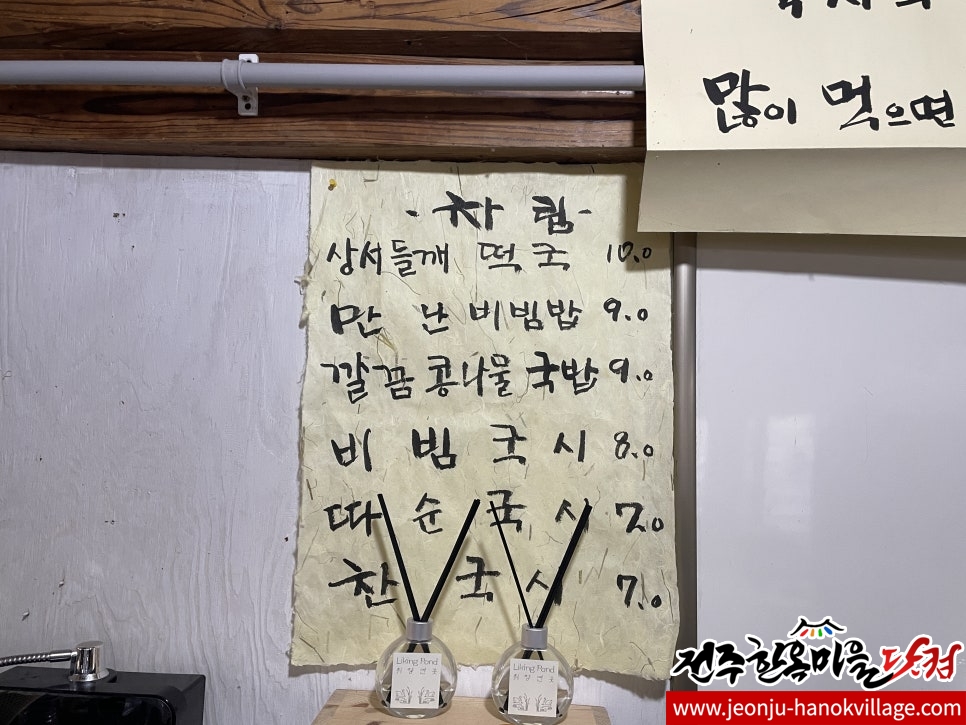 많이 먹으면
- 차림 -
상서들깨 떡국 10.0
만난비빔밥 9.0
깔끔콩나물국밥 9.0
비빔국시 8.0
따순국시 7.0
찬국시 7.0
Liking Pond
취향연못
Liking Pond
취향연못
전주한옥마을닷컴
www.jeonju-hanokvillage.com